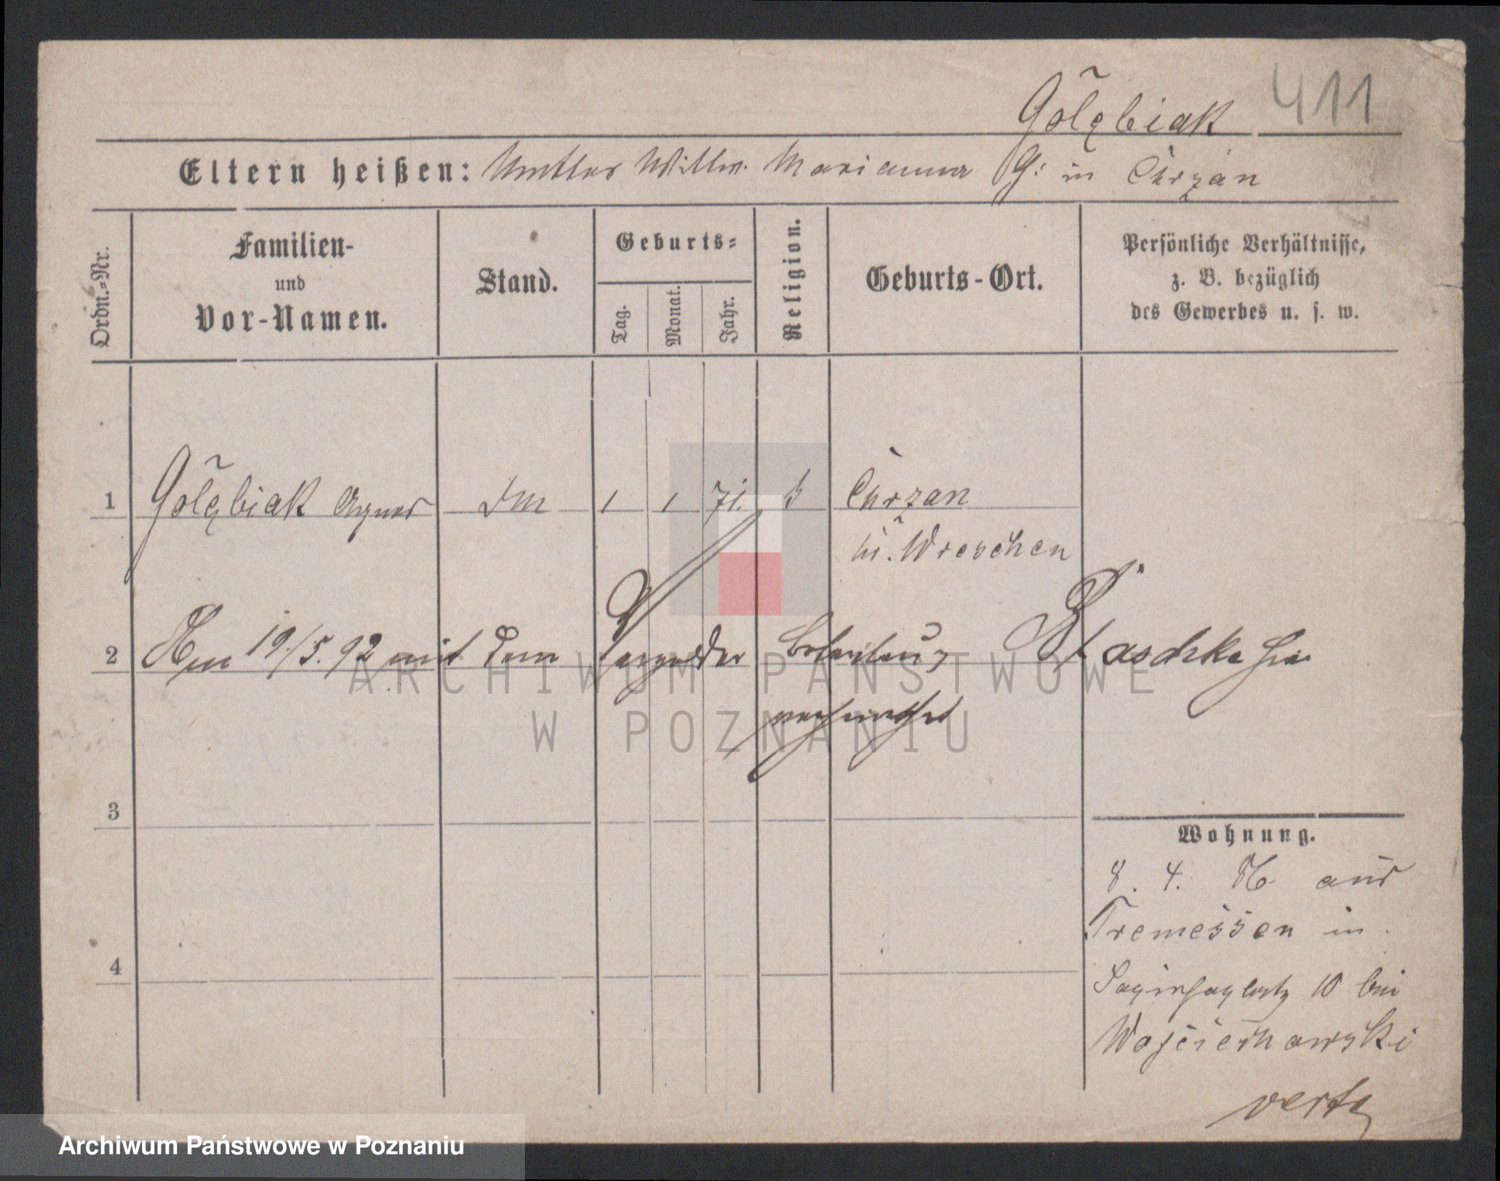 Gołębiak 411
Eltern heißen: Mutter Wittw. Marianna G: in Chrzan
Ordn.-Nr.
Familien-
und
Vor-Namen.
Stand.
Geburts-
Tag.
Monat.
Jahr.
Religion.
Geburts-Ort.
Persönliche Verhältnisse,
z. B. bezüglich
des Gewerbes u. s. w.
1 Gołębiak Agnes 1 1 71. k Chrzan
Kr. Wreschen
2 Am 19./5.92 mit dem Vergolder Boleslaus Staschke
verheirathet
3
Wohnung.
8. 4. 86 aus
Tremessen in
4
Sapiehaplatz 10 bei
Wojciechowski
verte
ARCHIWUM PAŃSTWOWE
W POZNANIU
Archiwum Państwowe w Poznaniu